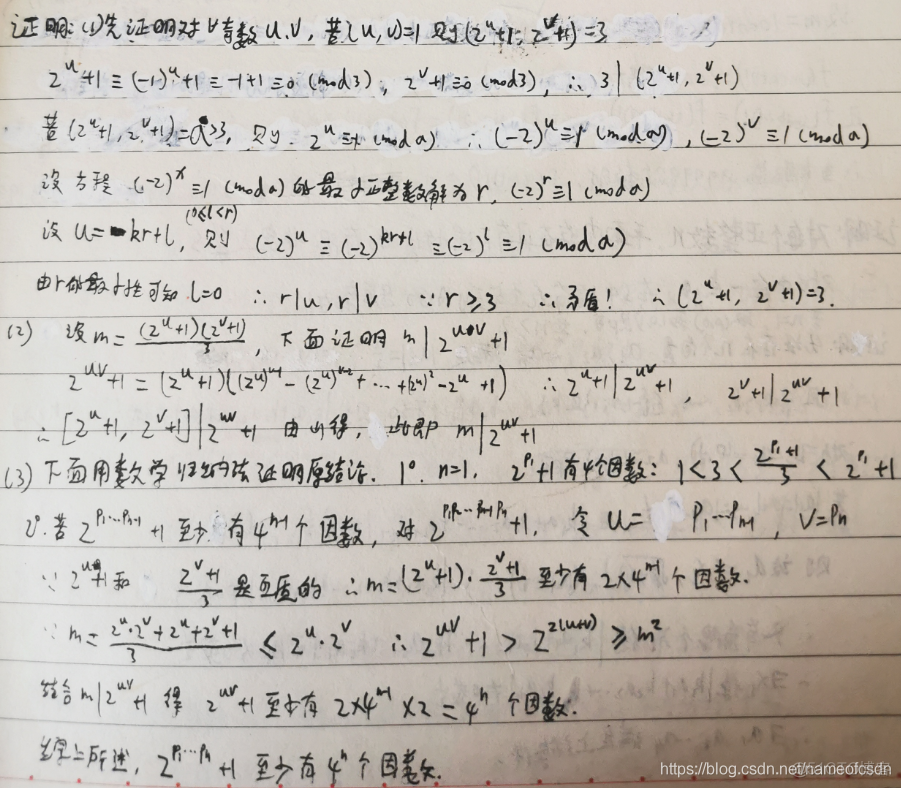 证明: (1)先证明对∀奇数u.v, 若(u,v)=1 则(2^u+1, 2^v+1)=3
2^u+1≡(-1)^u+1≡-1+1≡0 (mod3), 2^v+1≡0 (mod3), ∴3|(2^u+1, 2^v+1)
若(2^u+1, 2^v+1)=a>3, 则 2^u≡-1 (mod a) ∴(-2)^u≡1 (mod a), (-2)^v≡1 (mod a)
设方程 (-2)^x≡1 (mod a) 的最小正整数解为r, (-2)^r≡1 (mod a)
设u=kr+l, (0≤l<r) 则 (-2)^u≡(-2)^{kr+l}≡(-2)^l≡1 (mod a)
由r的最小性可知l=0 ∴r|u, r|v ∵r≥3 ∴矛盾! ∴(2^u+1, 2^v+1)=3.
(2) 设m=(2^u+1)(2^v+1)/3, 下面证明 m|2^{uv}+1
2^{uv}+1=(2^u+1)((2^u)^{v-1}-(2^u)^{v-2}+…+(2^u)^2-2^u+1) ∴2^u+1|2^{uv}+1, 2^v+1|2^{uv}+1
∴[2^u+1, 2^v+1]|2^{uv}+1 由(1)得, 此即 m|2^{uv}+1
(3)下面用数学归纳法证明原结论. 1° n=1. 2^{P1}+1有4个因数: 1<3<(2^{P1}+1)/3<2^{P1}+1
2° 若2^{P1…Pn-1}+1至少有4^{n-1}个因数, 对2^{P1P2…Pn-1Pn}+1, 令u=P1…Pn-1, v=Pn
∵2^u+1和(2^v+1)/3是互质的 ∴m=(2^u+1)·(2^v+1)/3 至少有2×4^{n-1}个因数.
∵m=(2^u·2^v+2^u+2^v+1)/3≤2^u·2^v ∴2^{uv}+1>2^{2(u+v)}≥m^2
结合m|2^{uv}+1 得 2^{uv}+1至少有2×4^{n-1}×2=4^n个因数.
综上所述, 2^{P1…Pn}+1至少有4^n个因数.
https://blog.csdn.net/nameofcsdn